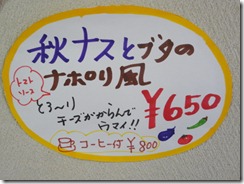 秋ナスとブタの
ナポリ風
トマト
ソース
とろ〜リ
チーズがからんで
ウマイ!!
¥650
コーヒー付¥800